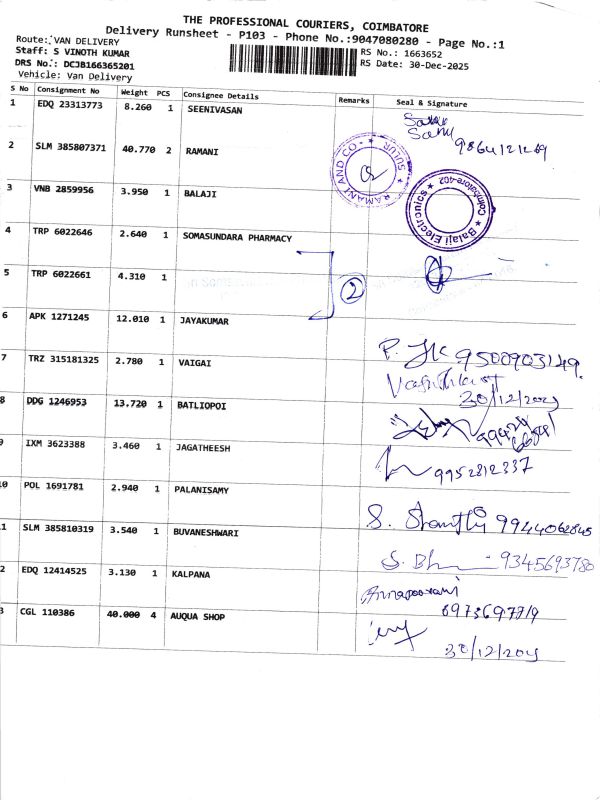 THE PROFESSIONAL COURIERS, COIMBATORE
Delivery Runsheet - P103 - Phone No.:9047080280 - Page No.:1
Route: VAN DELIVERY
Staff: S VINOTH KUMAR
DRS No.: DCJB166365201
Vehicle: Van Delivery
RS No.: 1663652
RS Date: 30-Dec-2025
S No Consignment No Weight PCS Consignee Details Remarks Seal & Signature
1 EDQ 23313773 8.260 1 SEENIVASAN
2 SLM 385807371 40.770 2 RAMANI
RAMANI AND CO - SULUR
3 VNB 2859956 3.950 1 BALAJI
Balaji Electronics Coimbatore-402
4 TRP 6022646 2.640 1 SOMASUNDARA PHARMACY
5 TRP 6022661 4.310 1
2
6 APK 1271245 12.010 1 JAYAKUMAR
P. 9500903149.
7 TRZ 315181325 2.780 1 VAIGAI
30/12/2025
8 DDG 1246953 13.720 1 BATLIOPOI
9 IXM 3623388 3.460 1 JAGATHEESH
9952812337
10 POL 1691781 2.940 1 PALANISAMY
S. Shanthi 9944062845
11 SLM 385810319 3.540 1 BUVANESHWARI
S. Bh 9345693780
2 EDQ 12414525 3.130 1 KALPANA
Annapoorani
3 CGL 110386 40.000 4 AUQUA SHOP